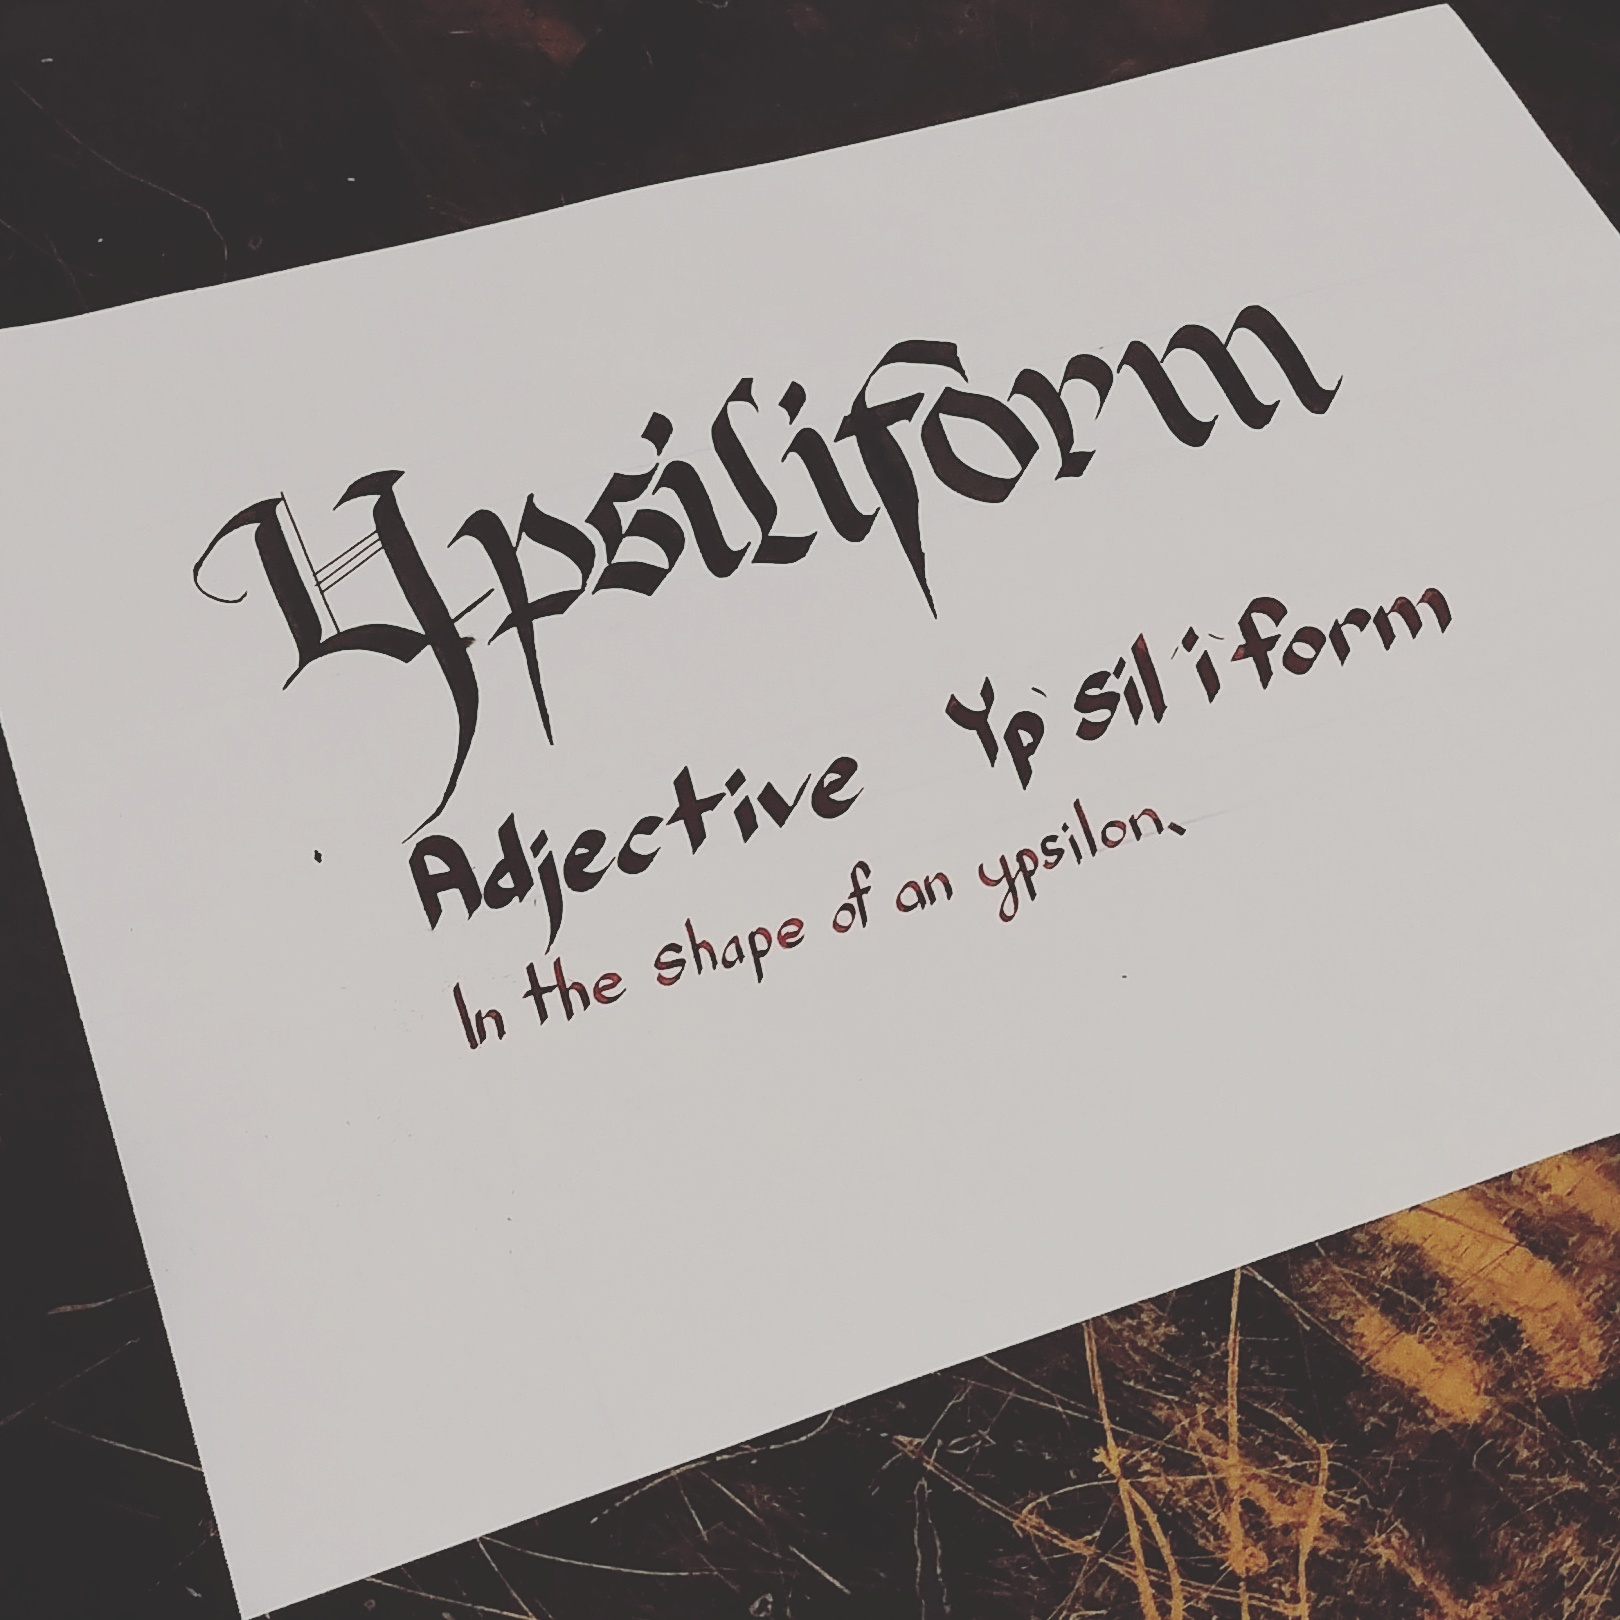 Ypsiliform
Adjective Yp`sil´i`form
In the shape of an ypsilon.